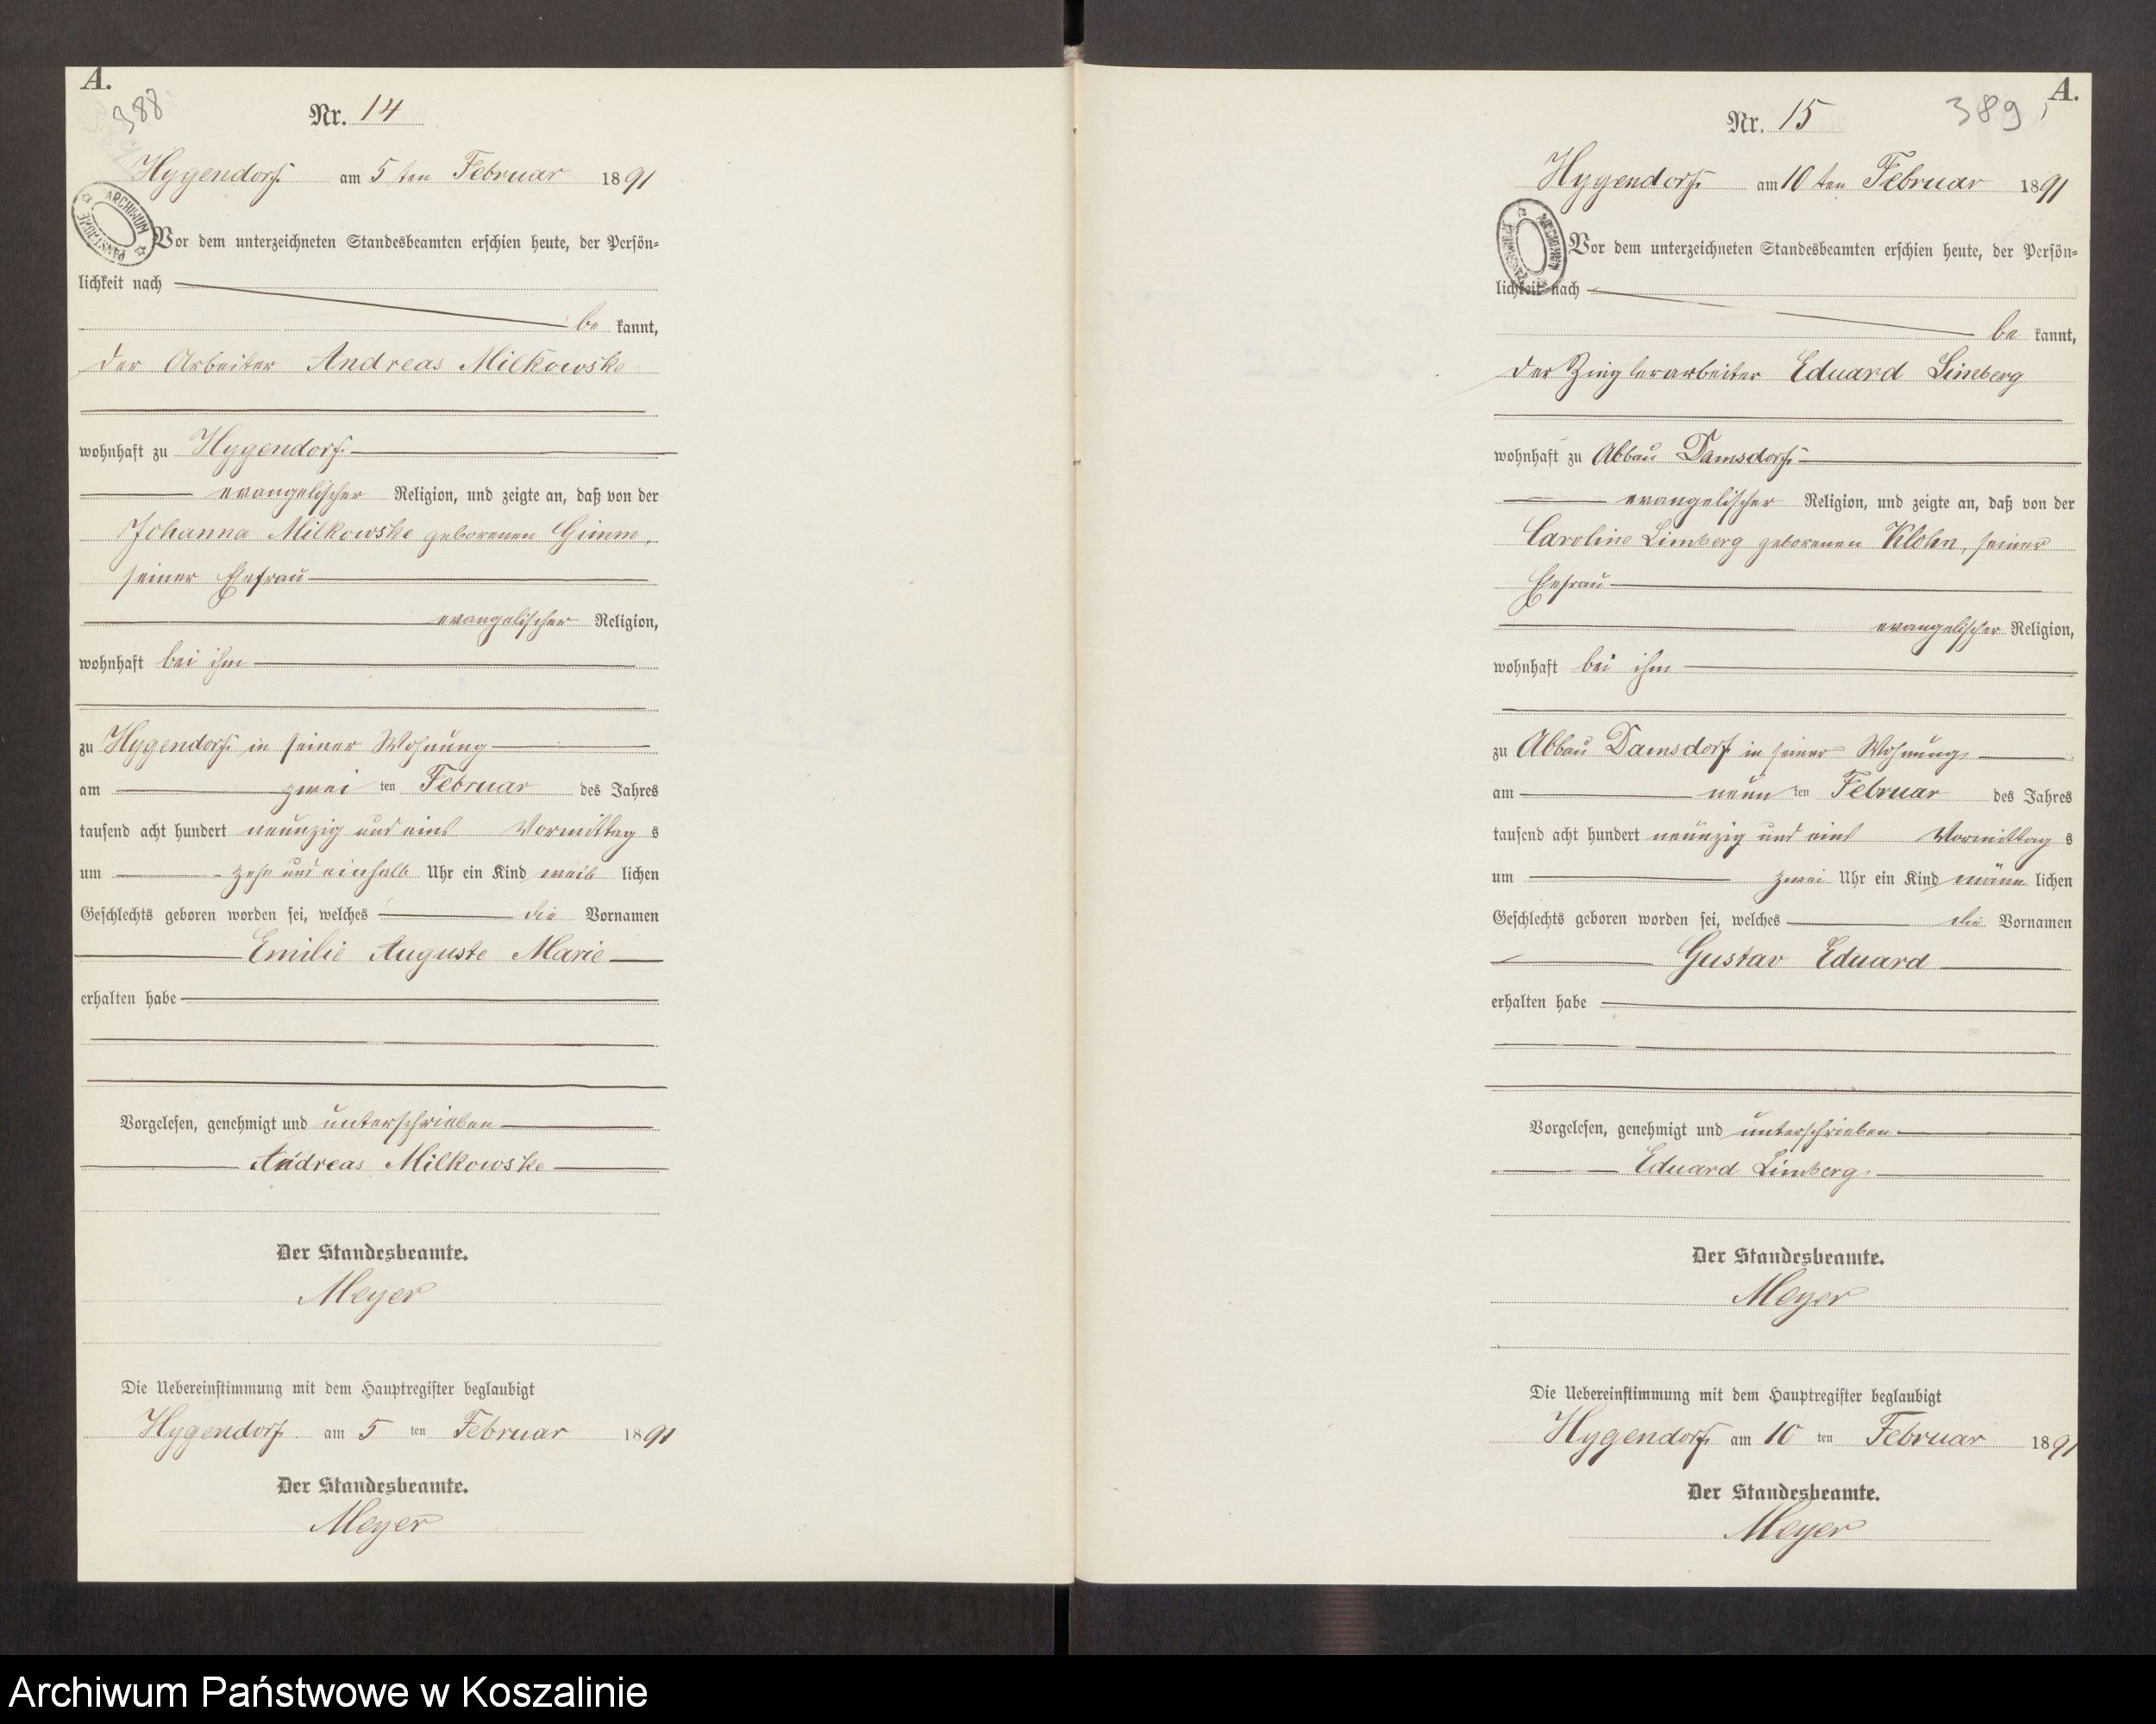 A.
388
Nr. 14
Hygendorf am 5 ten Februar 1891
ARCHIWUM PAŃSTWOWE
Vor dem unterzeichneten Standesbeamten erschien heute, der Persön-
lichkeit nach
be kannt,
der Arbeiter Andreas Milkowske
wohnhaft zu Hygendorf
evangelischer Religion, und zeigte an, daß von der
Johanna Milkowske geborenen Grimm,
seiner Ehefrau
evangelischer Religion,
wohnhaft bei ihm
zu Hygendorf in seiner Wohnung
am zwei ten Februar des Jahres
tausend acht hundert neunzig und eins Vormittag s
um zehn und einhalb Uhr ein Kind weib lichen
Geschlechts geboren worden sei, welches die Vornamen
Emilie Auguste Marie
erhalten habe
Vorgelesen, genehmigt und unterschrieben
Andreas Milkowske
Der Standesbeamte.
Meyer
Die Uebereinstimmung mit dem Hauptregister beglaubigt
Hygendorf am 5 ten Februar 1891
Der Standesbeamte.
Meyer
A.
389
Nr. 15
Hygendorf am 10 ten Februar 1891
ARCHIWUM PAŃSTWOWE
Vor dem unterzeichneten Standesbeamten erschien heute, der Persön-
lichkeit nach
be kannt,
der Zieglerarbeiter Eduard Limberg
wohnhaft zu Abbau Damsdorf
evangelischer Religion, und zeigte an, daß von der
Caroline Limberg geborenen Klohn, seiner
Ehefrau
evangelischer Religion,
wohnhaft bei ihm
zu Abbau Damsdorf in seiner Wohnung
am neun ten Februar des Jahres
tausend acht hundert neunzig und eins Vormittag s
um zwei Uhr ein Kind männ lichen
Geschlechts geboren worden sei, welches die Vornamen
Gustav Eduard
erhalten habe
Vorgelesen, genehmigt und unterschrieben
Eduard Limberg
Der Standesbeamte.
Meyer
Die Uebereinstimmung mit dem Hauptregister beglaubigt
Hygendorf am 10 ten Februar 1891
Der Standesbeamte.
Meyer
Archiwum Państwowe w Koszalinie